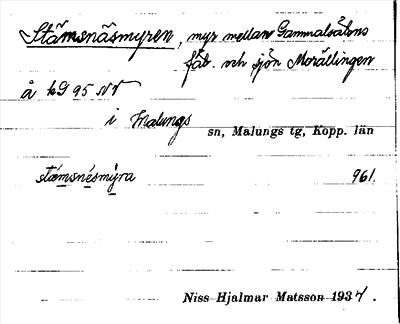 Stämsnäsmyren, myr mellan Gammalsälens
fäb. och sjön Morällingen
å kG 95 NV
i Malungs sn, Malungs tg, Kopp. län
stámsnésmy̆ra 961.
Niss Hjalmar Matsson 1934.